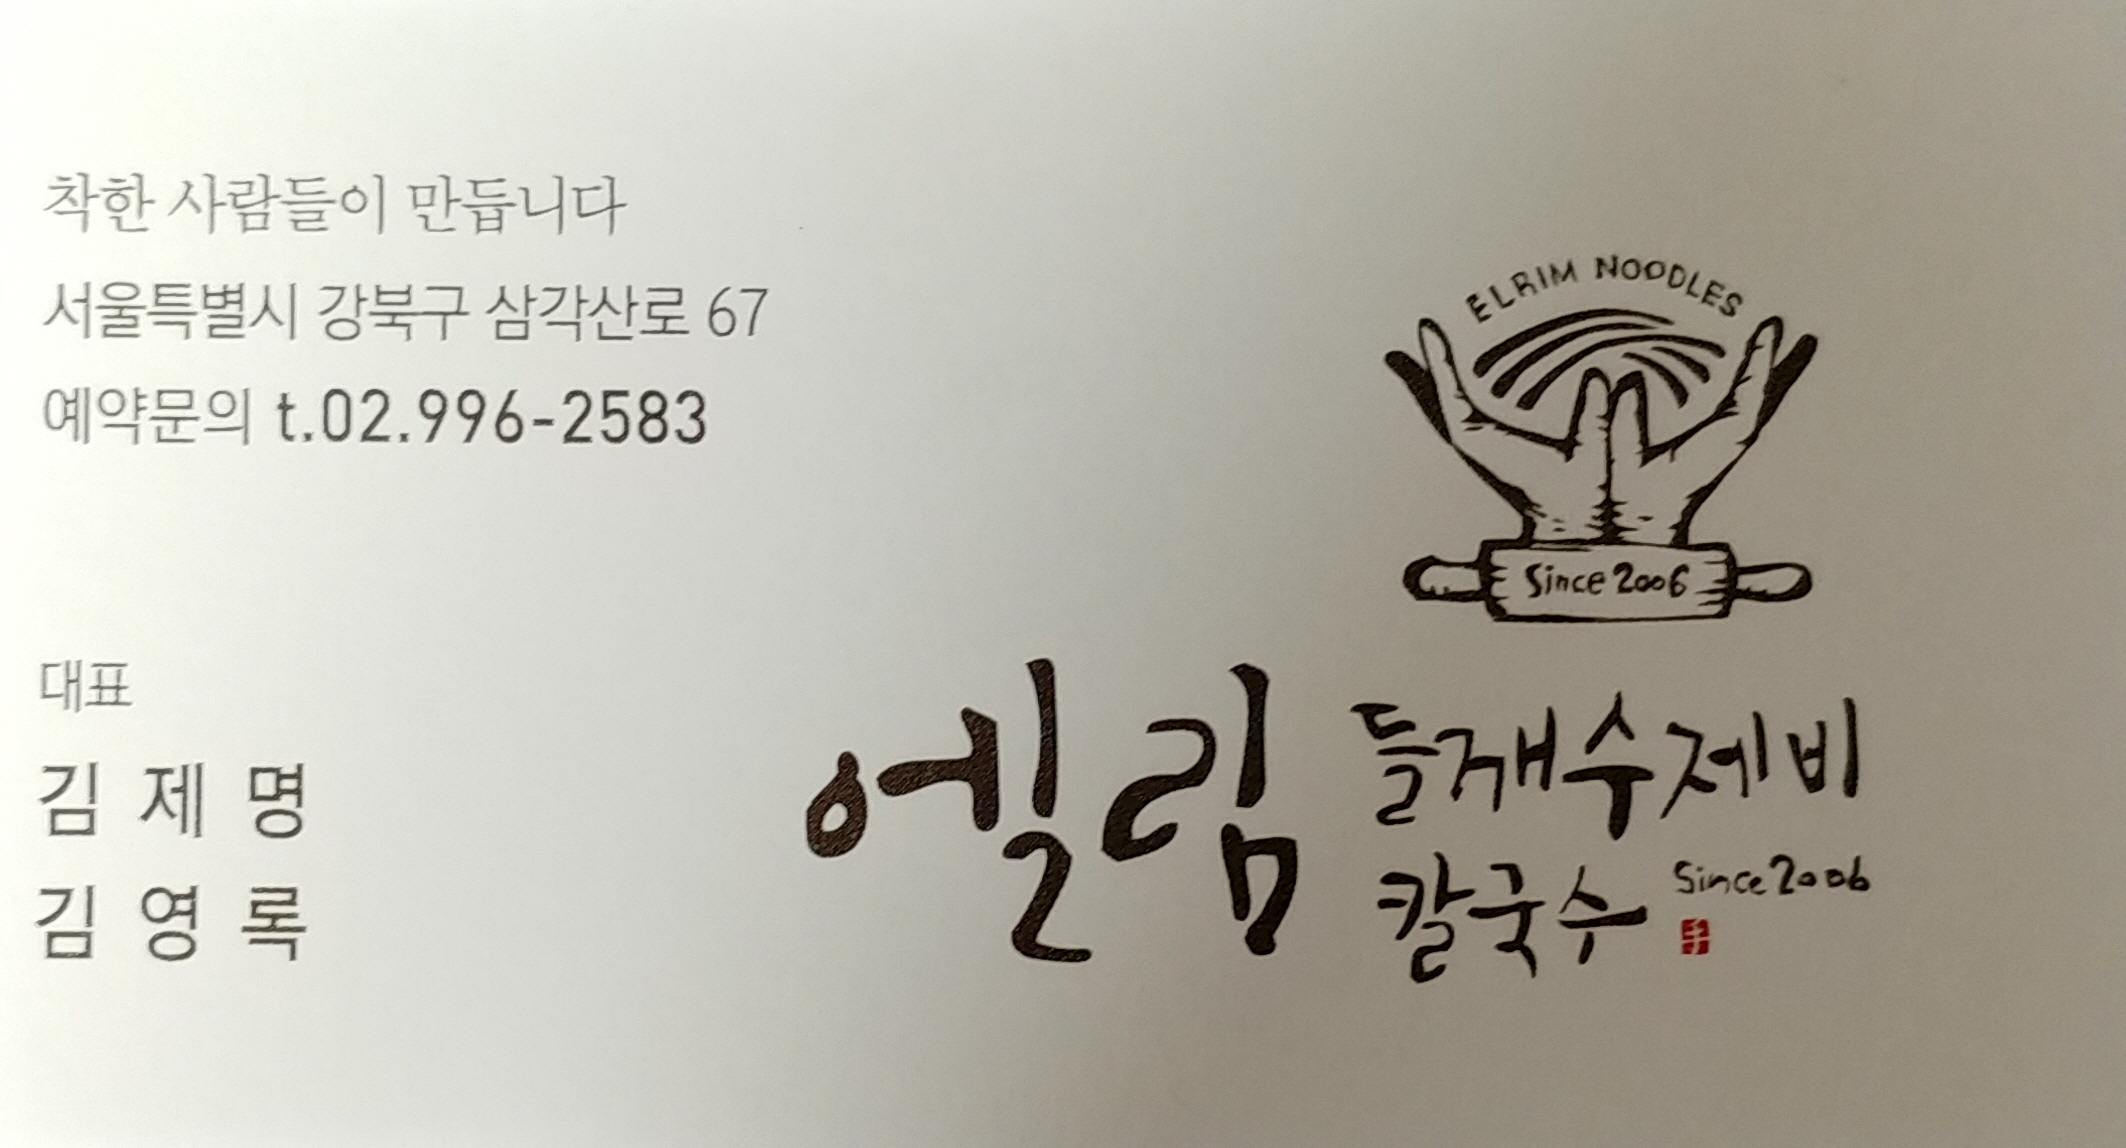 착한 사람들이 만듭니다
서울특별시 강북구 삼각산로 67
예약문의 t.02.996-2583
대표
김 제 명
김 영 록
ELRIM NOODLES
Since 2006
엘림
들깨수제비
칼국수
Since 2006